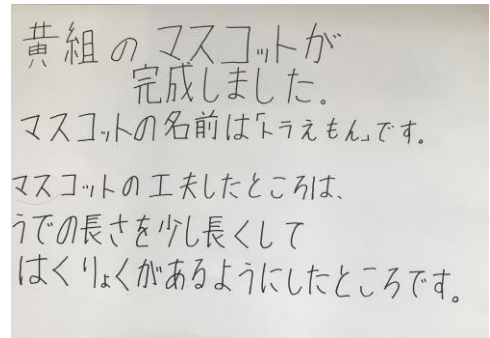 黄組のマスコットが
完成しました。
マスコットの名前は「トラえもん」です。
マスコットの工夫したところは、
うでの長さを少し長くして
はくりょくがあるようにしたところです。